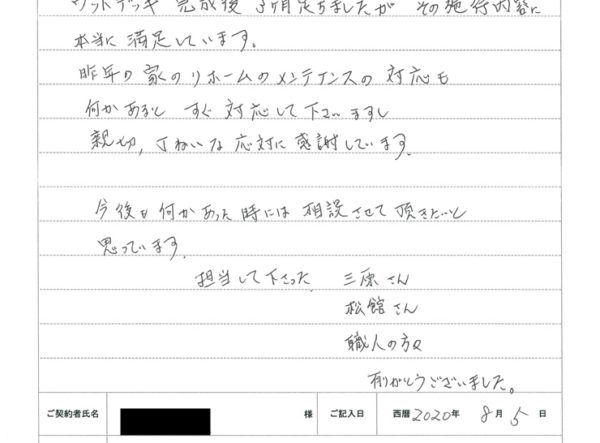 ウッドデッキ 完成後 3ヶ月たちましたが その施行内容に
本当に満足しています。
昨年の家のリホームのメンテナンスの対応も
何かあると すぐ対応して下さいますし
親切、丁ねいな応対に感謝しています。
今後も何かあった時には相談させて頂きたいと
思っています。
担当して下さった 三原さん
松舘さん
職人の方々
有がとうございました。
ご契約者氏名 様 ご記入日 西暦 2020年 8月 5日